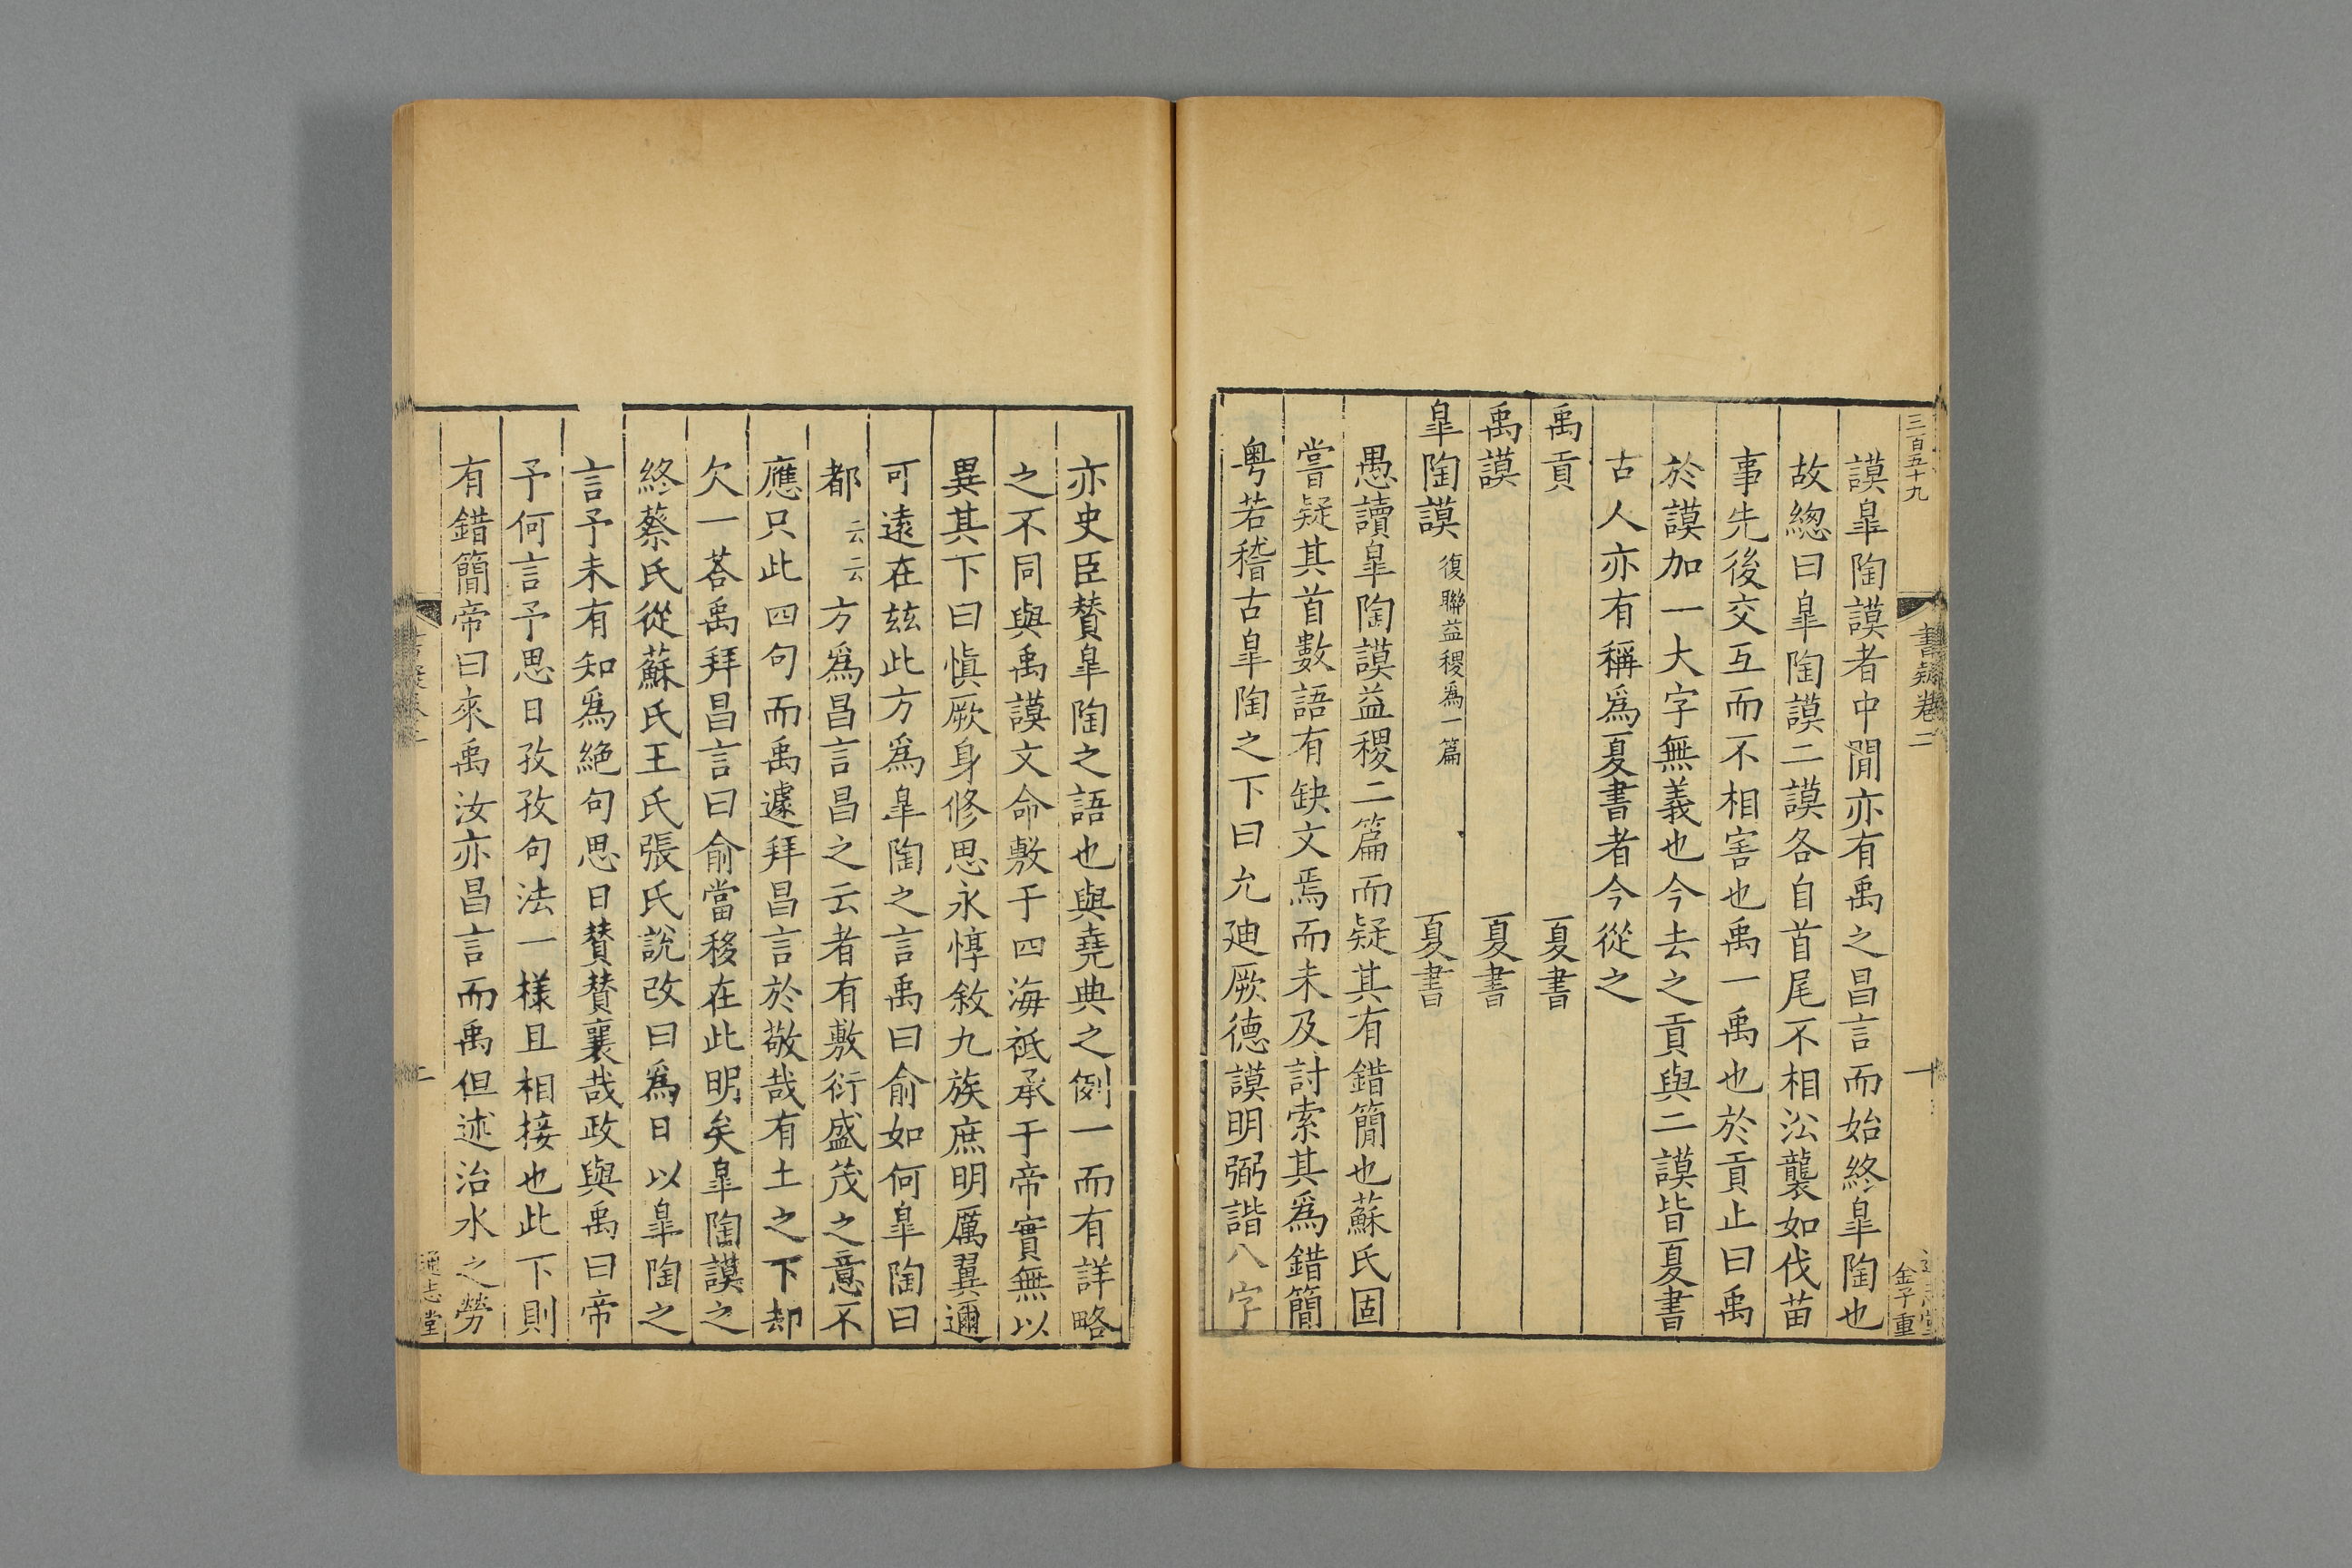 三百五十九
書疑卷二
一
金子重
謨臯陶謨者中閒亦有禹之昌言而始終臯陶也
故緫曰臯陶謨二謨各自首尾不相㳂襲如伐苗
事先後交互而不相害也禹一禹也於貢止曰禹
於謨加一大字無義也今去之貢與二謨皆夏書
古人亦有稱爲夏書者今從之
禹貢 夏書
禹謨 夏書
臯陶謨 復聯益稷爲一篇 夏書
愚讀臯陶謨益稷二篇而疑其有錯簡也蘇氏固
嘗疑其首數語有缺文焉而未及討索其爲錯簡
粤若稽古臯陶之下曰允廸厥德謨明弼諧八字
亦史臣賛臯陶之語也與堯典之例一而有詳略
之不同與禹謨文命敷于四海祗承于帝實無以
異其下曰愼厥身修思永惇敘九族庶明厲翼邇
可遠在兹此方爲臯陶之言禹曰俞如何臯陶曰
都云云方爲昌言昌之云者有敷衍盛茂之意不
應只此四句而禹遽拜昌言於敬哉有土之下却
欠一荅禹拜昌言曰俞當移在此明矣臯陶謨之
終蔡氏從蘇氏王氏張氏說改曰爲日以臯陶之
言予未有知爲絕句思日賛賛襄哉政與禹曰帝
予何言予思日孜孜句法一樣且相接也此下則
有錯簡帝曰來禹汝亦昌言而禹但述治水之勞
二
通志堂